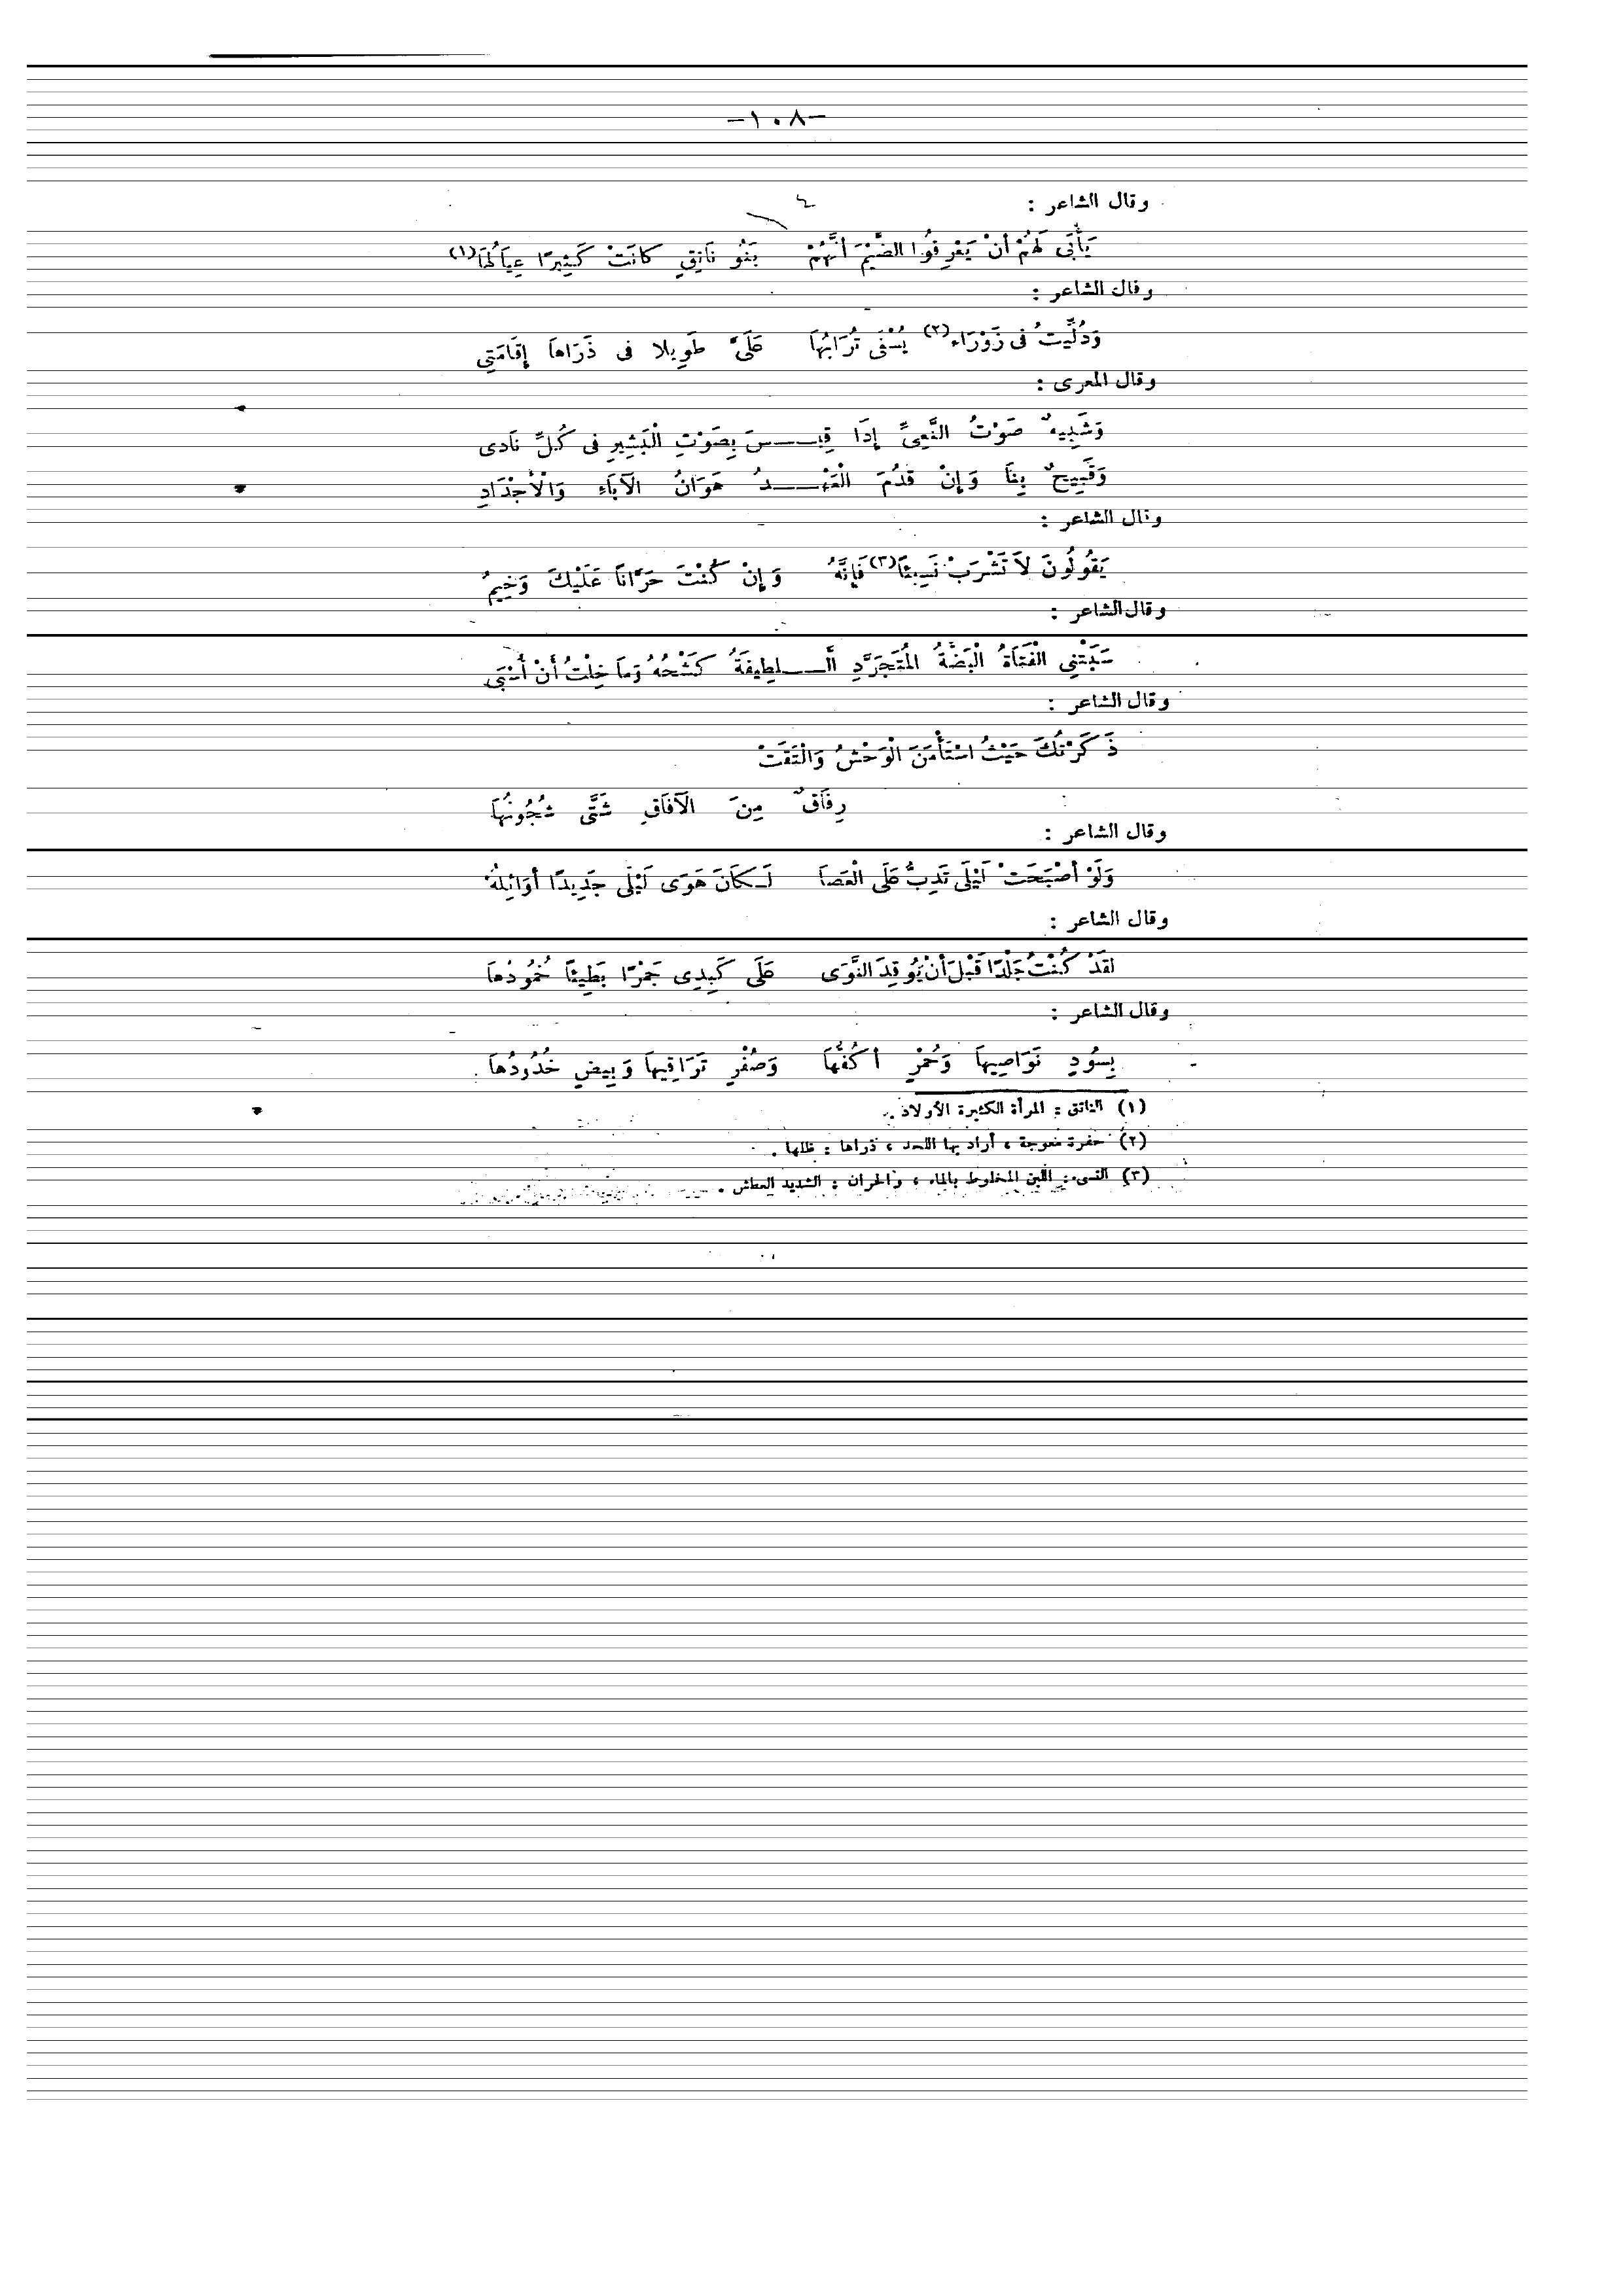 -١٠٨-
وقال الشاعر :
يَأْبَى لَهُمْ أنْ يَعْرِفُوا الضَّيْمَ أنَّهُمْ بَنُو نَاتِقٍ كانَتْ كَثِيرًا عِيَالُهَا(١)
وقال الشاعر :
وَدُلِّيتُ فى زَوْرَاء(٢) يُسْفَى تُرَابُهَا عَلَىَّ طَوِيلا فى ذَرَاها إقَامَتِى
وقال المعرى :
وَشَبِيهٌ صَوْتُ النَّعِىِّ إذَا قِيـــسَ بِصَوْتِ الْبَشِيرِ فى كُلِّ نَادى
وَقَبِيحٌ بِنَا وَإنْ قَدُمَ الْعَهْـــدُ هَوَانُ الآبَاءِ وَالْأجْدَادِ
وقال الشاعر :
يَقُولُونَ لاَ تَشْرَبْ نَسِيئًا(٣) فَإنَّهُ وَإنْ كُنْتَ حَرَّاناً عَلَيْكَ وَخِيمُ
وقال الشاعر :
سَبَتْنِى الْفَتَاةُ الْبَضَّةُ المُتَجَرَّدِ الَّـــلطِيفَةُ كَشْحُهُ وَمَا خِلْتُ أَنْ أُسْبَى
وقال الشاعر :
ذَكَرْتُكَ حَيْثُ اسْتَأْمَنَ الْوَحْشُ وَالْتَقَتْ
رِفَاقٌ مِنَ الآفَاقِ شَتَّى شُجُونُهَا
وقال الشاعر :
وَلَوْ أصْبَحَتْ لَيْلَى تَدِبُّ عَلَى الْعَصَا لَـكَانَ هَوَى لَيْلَى جَدِيدًا أوَائِلُهُ
وقال الشاعر :
لَقَدْ كُنْتُ جَلْدًا قَبْلَ أنْ يُوقِدَ النَّوَى عَلَى كَبِدِى جَمْرًا بَطِيئًا خُمُودُهَا
وقال الشاعر :
بِسُودٍ نَوَاصِيهَا وَحُمْرٍ أكُفُّهَا وَصُفْرٍ تَرَاقِيهَا وَبِيضٍ خُدُودُهَا
(١) الناتق : المرأة الكثيرة الأولاد .
(٢) حفرة معوجة ، أراد بها اللحد ، ذراها : ظلها .
(٣) النسىء : اللبن المخلوط بالماء ، والحران : الشديد العطش .